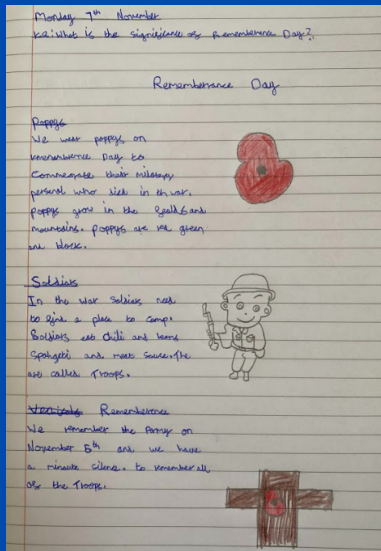 Monday 7th November
KQ: What is the significance of Rememberence Day?
Rememberance Day
Poppys
We wear poppys on
rememberence Day to
Commerate their military
personal who died in th war.
Poppys grow in the fealds and
mountains. Poppys are red green
and black.
Soldiers
In the war soldiers need
to find a place to camp.
Soldiers eat chili and beans
Spahgeti and meat sauce. The
are called Troops.
Rememberence
We remember the Army on
November 5th and we have
a minute silence. to remember all
of the Troops.